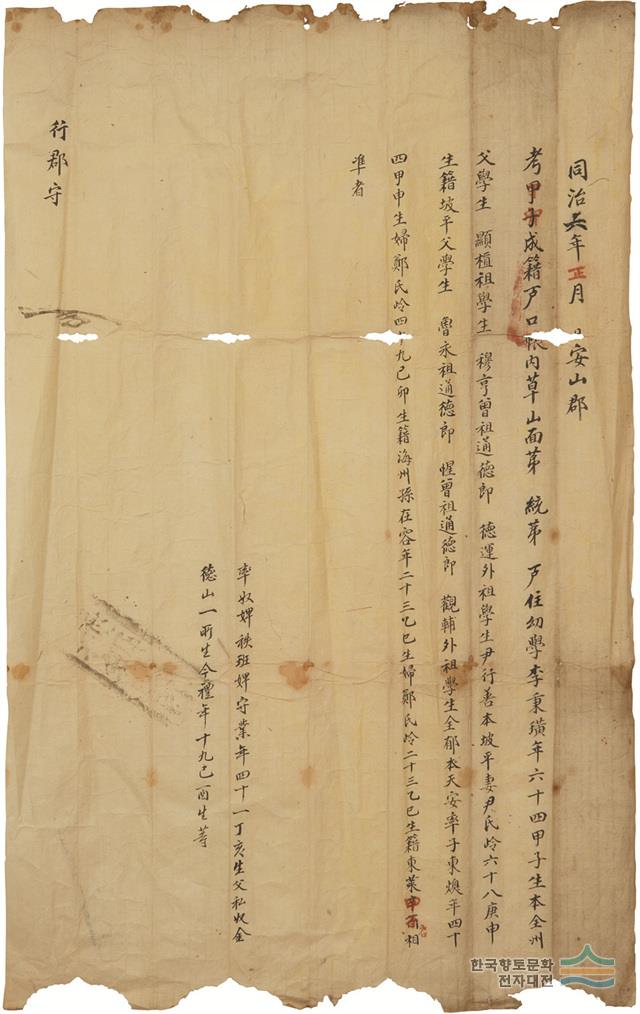 同治六年正月 日安山郡
考甲子成籍戶口帳內草山面第 統第 戶住幼學李秉璜年六十四甲子生本全州
父學生 顯植祖學生 穆亨曾祖通德郎 德運外祖學生尹行善本坡平妻尹氏齡六十八庚申
生籍坡平父學生 魯永祖通德郎 惺曾祖通德郎 觀輔外祖學生全郁本天安率子東煥年四十
四甲申生婦鄭氏齡四十九己卯生籍海州孫在容年二十三乙巳生婦鄭氏齡二十三乙巳生籍東萊 相
準者
率奴婢秩班婢守業年四十一丁亥生父私奴全
德山一所生今禮年十九己酉生等
行郡守
한국향토문화
전자대전